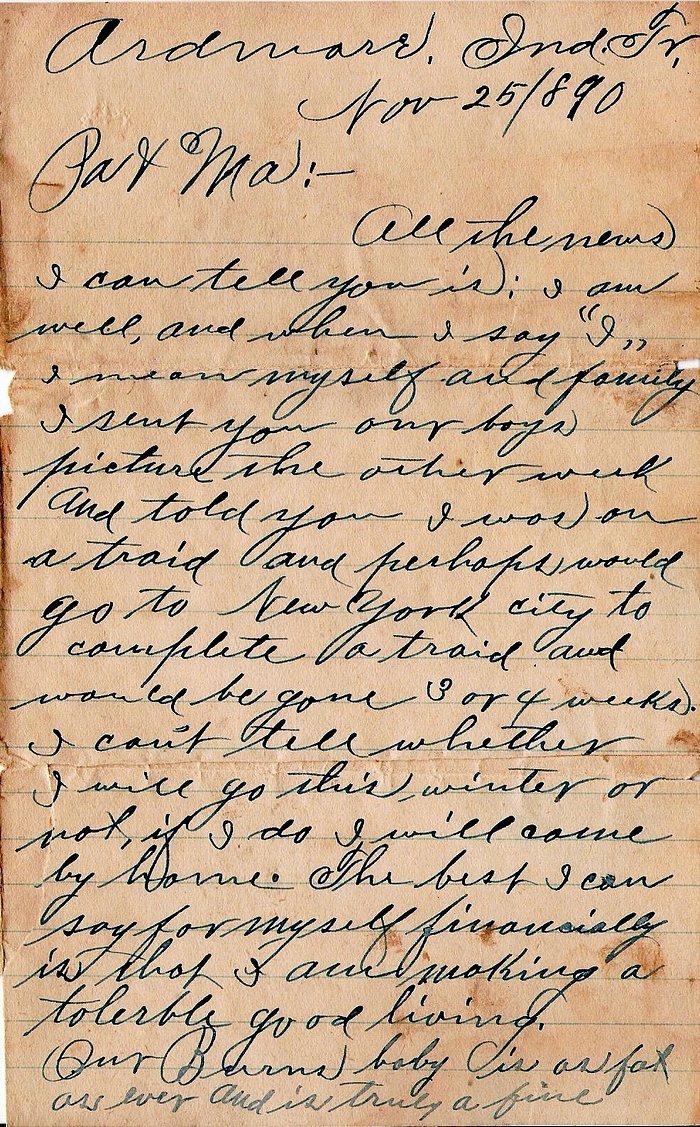 Ardmore, Ind. Tr.
Nov 25/890
Pa & Ma:-
All the news
I can tell you is; I am
well, and when I say "I,,
I mean myself and family
I sent you our boys
picture the other week
And told you I was on
a traid and perhaps would
go to New York city to
complete a traid and
would be gone 3 or 4 weeks.
I can't tell whether
I will go this winter or
not, if I do I will come
by home. The best I can
say for myself financially
is that I am making a
tolerble good living.
Our Burns baby is as fat
as ever and is truly a fine